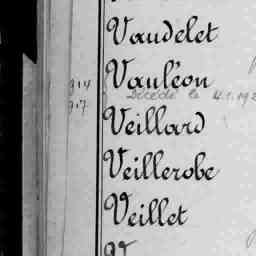 Vaudelet
914 Vauléon
Décédé le
917
Veillard
Veillerobe
Veillet